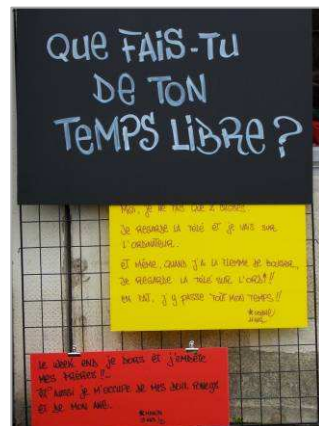 QUE FAIS-TU
DE TON
TEMPS LIBRE ?
MOI, JE NE FAIS QUE 2 CHOSES..
JE REGARDE LA TÉLÉ ET JE VAIS SUR
L'ORDINATEUR..
ET MÊME, QUAND J'AI LA FLEMME DE BOUGER..,
JE REGARDE LA TÉLÉ SUR L'ORDI !!
EN FAIT, J'Y PASSE TOUT MON TEMPS !!
LE WEEK END JE DORS ET J'EMBÊTE
MES FRÈRES !..
ET AUSSI JE M'OCCUPE DE MES DEUX
ET DE MON ÂNE..